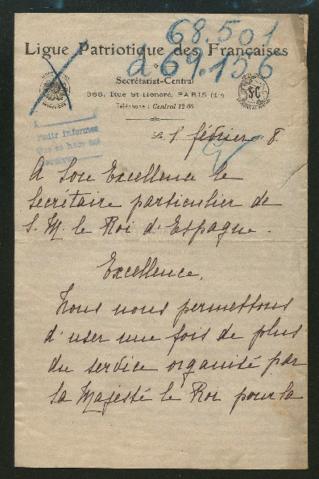 68.501
Ligue Patriotique des Françaises
a 69.156
Secrétariat-Central
368, Rue St Honoré, PARIS (1er
Téléphone : Central 12 66
SC
Pedir informes
que se hace
1 février 8.
A Son Excellence le
Secrétaire particulier de
S. M. le Roi d'Espagne.
Excellence,
Nous nous permettons
d'user une fois de plus
du service organisé par
Sa Majesté le Roi pour la